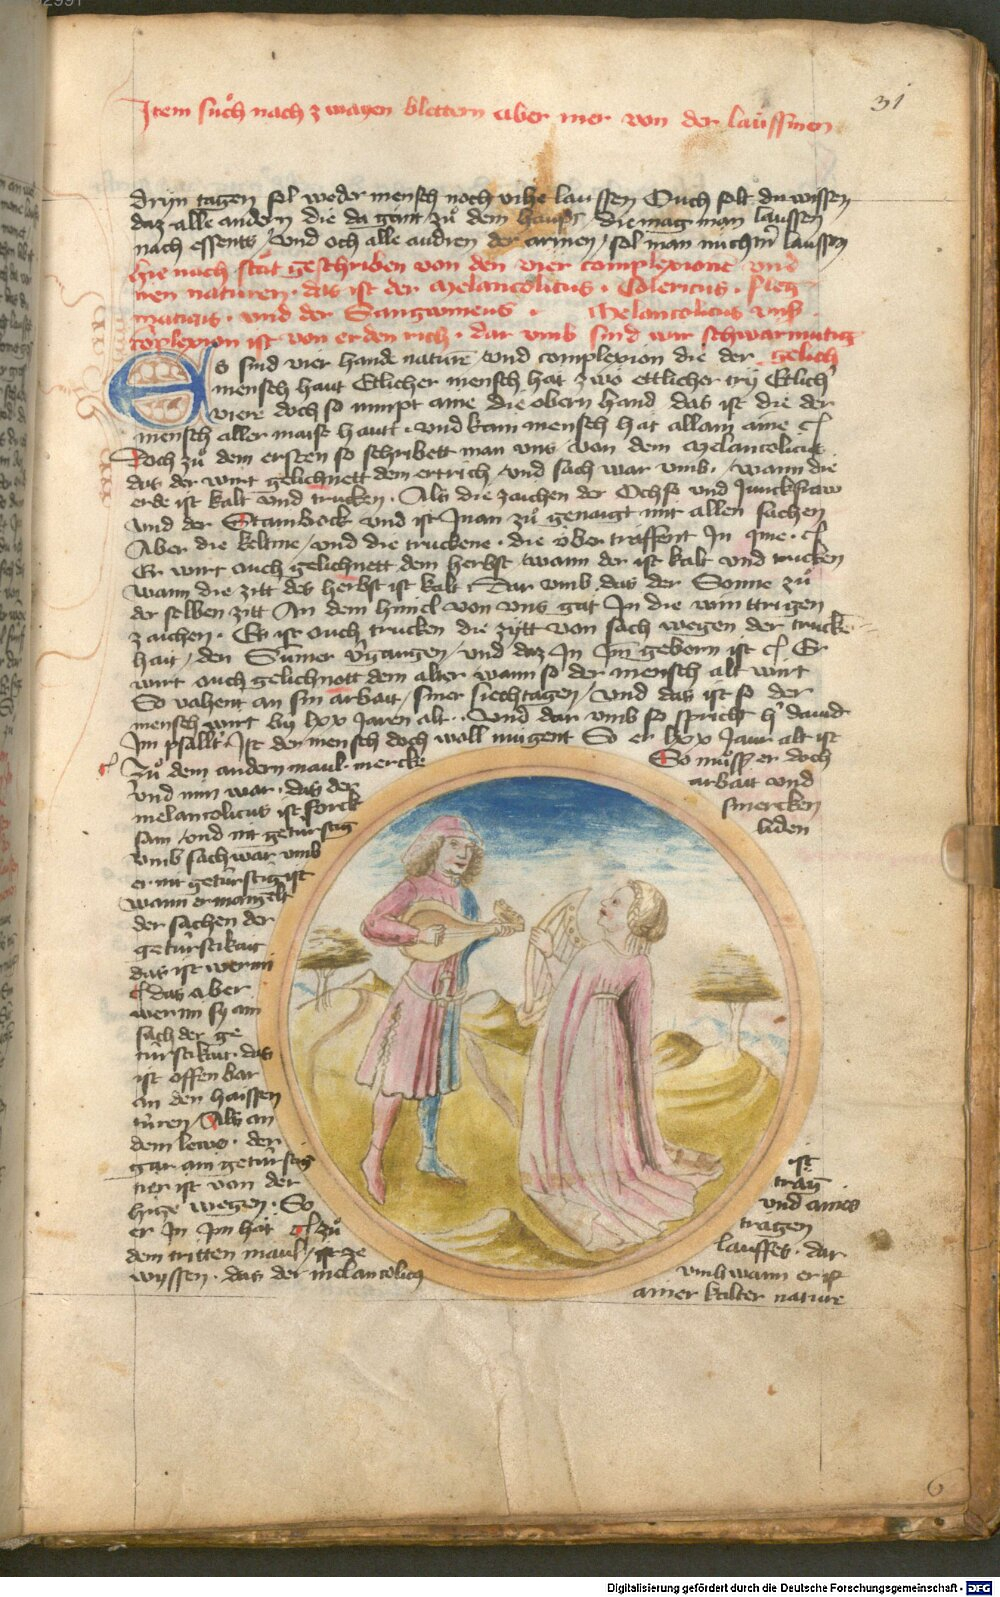 31
Item sůch nach zwayen blettern aber mer von der laůssinen
dryn tagen sol weder mensch noch vihe laussen Ouch solt du wissen
daz alle andern die da gant zů dem haupt die mag man laussen
nach essents / vnd och alle audren der armen / sol man laussen
hie nach stät geschriben von den vier complexione vnd
naturen · das ist der Melancolicus · Colericus · fleg
maticus · vnd der Sangwineus · Melancolicus vmb
coplexion ist von erdenrich · dar vmb sind wir schwarmutig
gelich
Es sind vier hande nature vnd complexion die der
mensch haut Ettlicher mensch hat zwo ettlicher try Ettlich
viere doch so nimpt aine die obern hand das ist die der
mensch aller maist hautt · vnd kain mensch hät allain aine
Doch zů dem ersten so schribett man vns von dem Melancolicus
das der wirt gelichnett dem ertrich / vnd sach war vmb · / wann die
erde ist kalt vnd trucken · Als die zaichen der Ochse vnd Junckfraw
vnd der Stainbock vnd ist Jnan zů genaigt mit allen sachen
Aber die keltine / vnd die truckene · die über träffent Jn
Er wirt ouch gelichnett dem herbst wann der ist kalt vnd trucken
wann die zitt des herbst ist kalt Dar vmb das der Sonne zů
der selben zitt An dem himel von vns gat Jn die winttrigen
zaichen · Er ist ouch trucken die zytt von sach wegen der trucke
hait / den Sumer vgangen / vnd daz Jn Jm gebern ist Er
wirt ouch gelichnott dem alter wann so der mensch alt wirt
So vahent an sin arbait / siner siechtagen / vnd das ist so der
mensch wirt by lxx Jaren alt · Vnd dar vmb so spricht h dauid
Jm psallt Jst der mensch doch woll mügent So er lxx Jaur alt ist
So můsß er doch
arbait vnd
smercken
liden
Zů dem andern maul · mercke
vnd nim war · das der
melancolicus ist forck
sam / vnd nit getürstig
vmb sach war vmb
er nit getürstig ist
wann er mangelt
der sachen der
getürstikait
das ist wermi
das aber
wermi sy ain
sach der ge
türstikait · das
ist offenbar
an den haissen
türen / Als an
dem lewe · der
gar ain getürstig
tier ist von der
hitze wegen · So
er Jn Jm hät zů
dem tritten maul / ist ze
wyssen · das der melancolicus
ist
träg
vnd aines
tragen
lauffes · dar
vmb wann er ist
ainer kalter nature
6
Digitalisierung gefördert durch die Deutsche Forschungsgemeinschaft - DFG